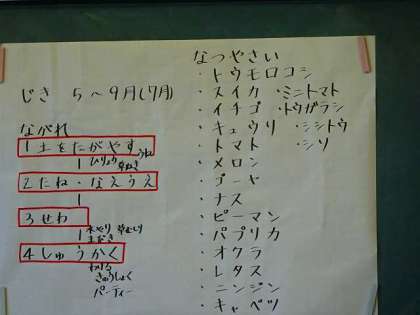 じき 5〜9月(7月)
ながれ
1土をたがやす
うね
ひりょう 草ぬき
2たね・なえうえ
3せわ
水やり 草むしり
4しゅうかく
わける
きゅうしょく
パーティー
なつやさい
・トウモロコシ
・スイカ ・ミニトマト
・イチゴ ・トウガラシ
・キュウリ ・シシトウ
・トマト ・シソ
・メロン
・ゴーヤ
・ナス
・ピーマン
・パプリカ
・オクラ
・レタス
・ニンジン
・キャベツ